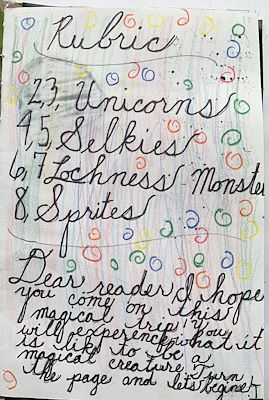 Rubric
2,3, Unicorns
4,5, Selkies
6,7 Lochness Monster
8, Sprites
Dear reader, I hope
you come on this
magical trip, you
will experience what it
is like to be a
magical creature. Turn
the page and let's begine!